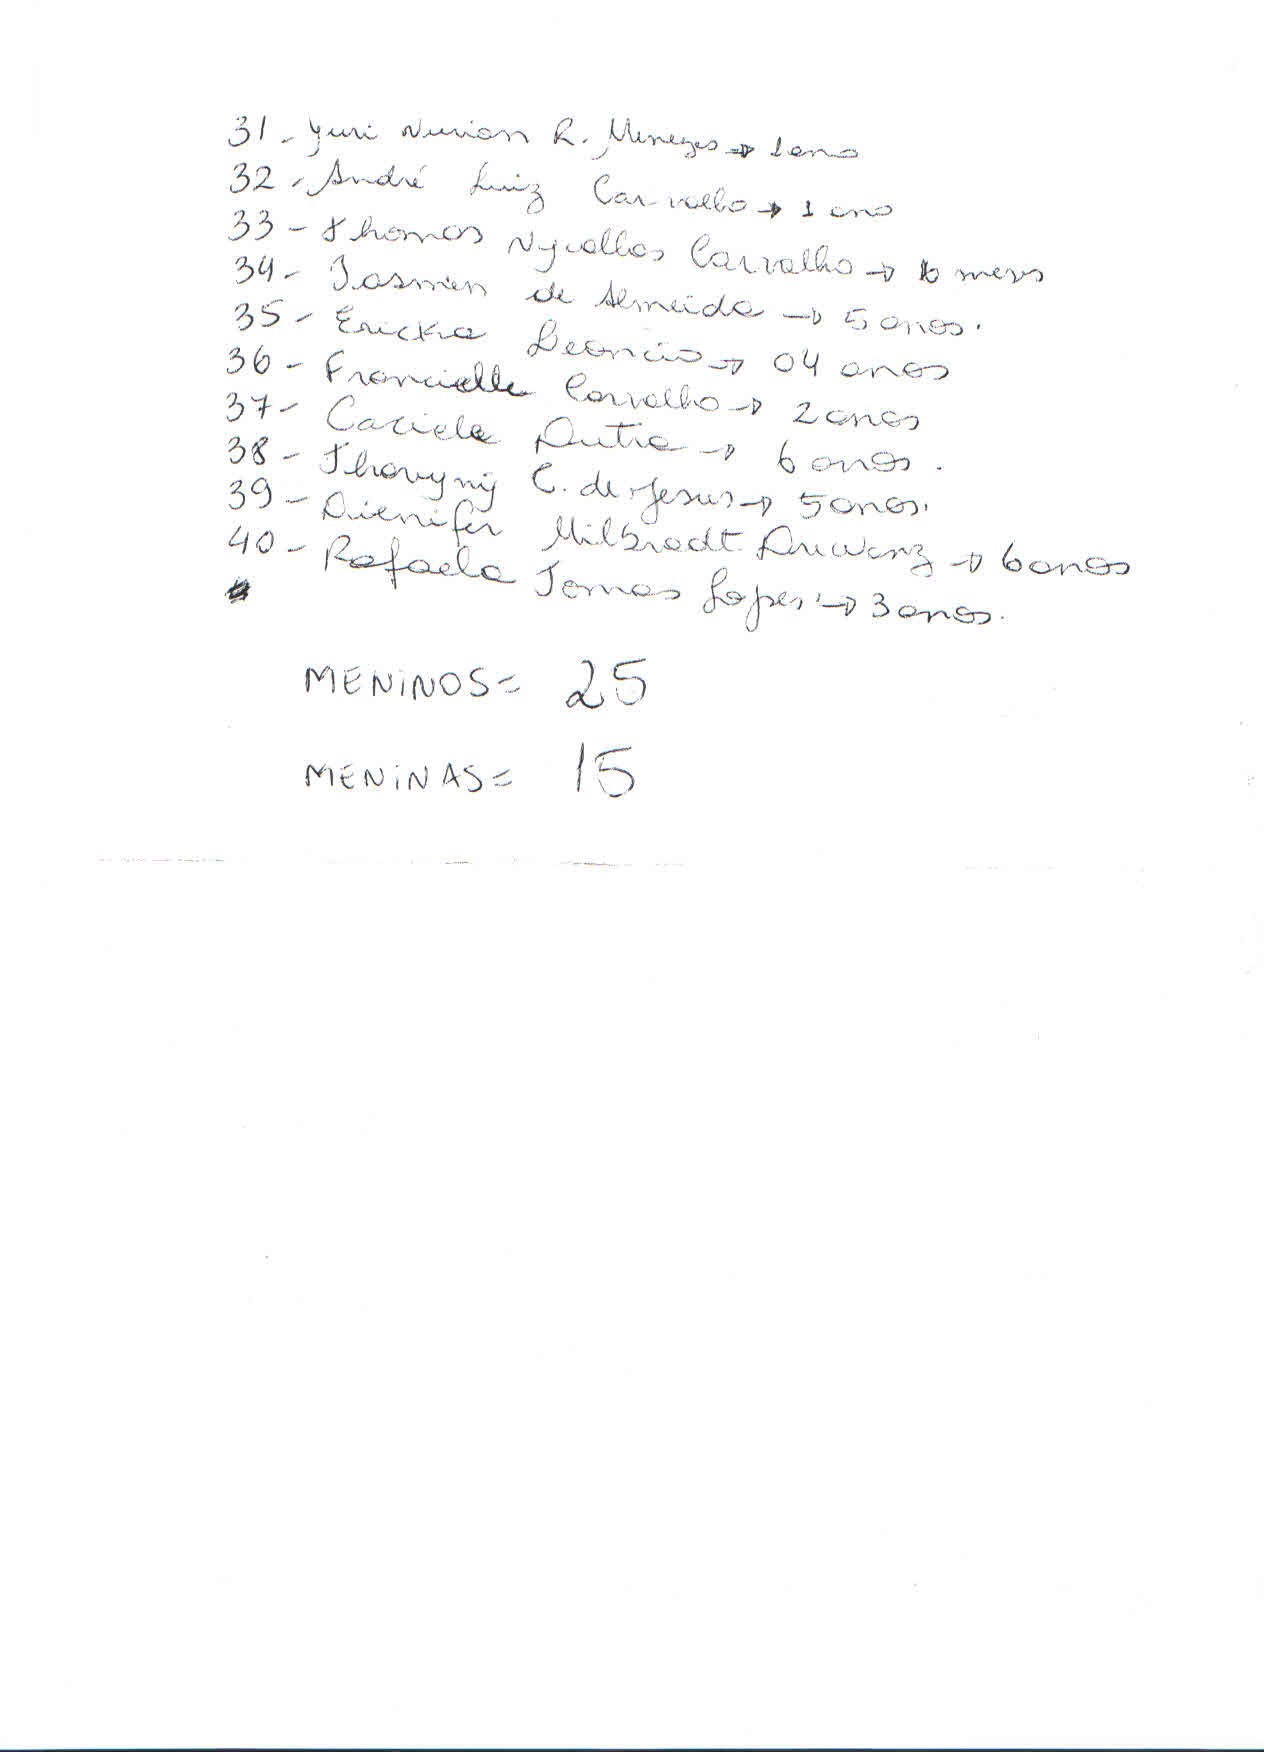 31 - Yuri Nurian R. Menezes → 1 ano
32 - André Luiz Carvalho → 1 ano
33 - Thomas Nycollas Carvalho → meses
34 - Iasmin de Almeida → 5 anos.
35 - Ericka Leoncio → 04 anos
36 - Francielle Carvalho → 2 anos
37 - Caciele Dutra → 6 anos.
38 - C. de Jesus → 5 anos.
39 - Dienifer Milbradt → 6 anos
40 - Rafaela Tomas Lopes → 3 anos.
MENINOS = 25
MENINAS = 15